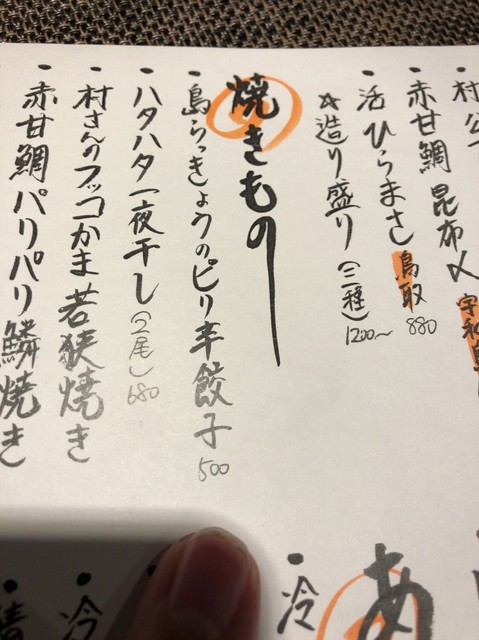 村公
・赤甘鯛 昆布〆 宇和島
・活ひらまさ 鳥取 880
☆造り盛り(三種) 1200〜
焼きもの
・島らっきょうのピリ辛餃子 500
・ハタハタ一夜干し(2尾) 680
・村さんのフッコかま若狭焼き
・赤甘鯛パリパリ鱗焼き
あ
・冷
・冷